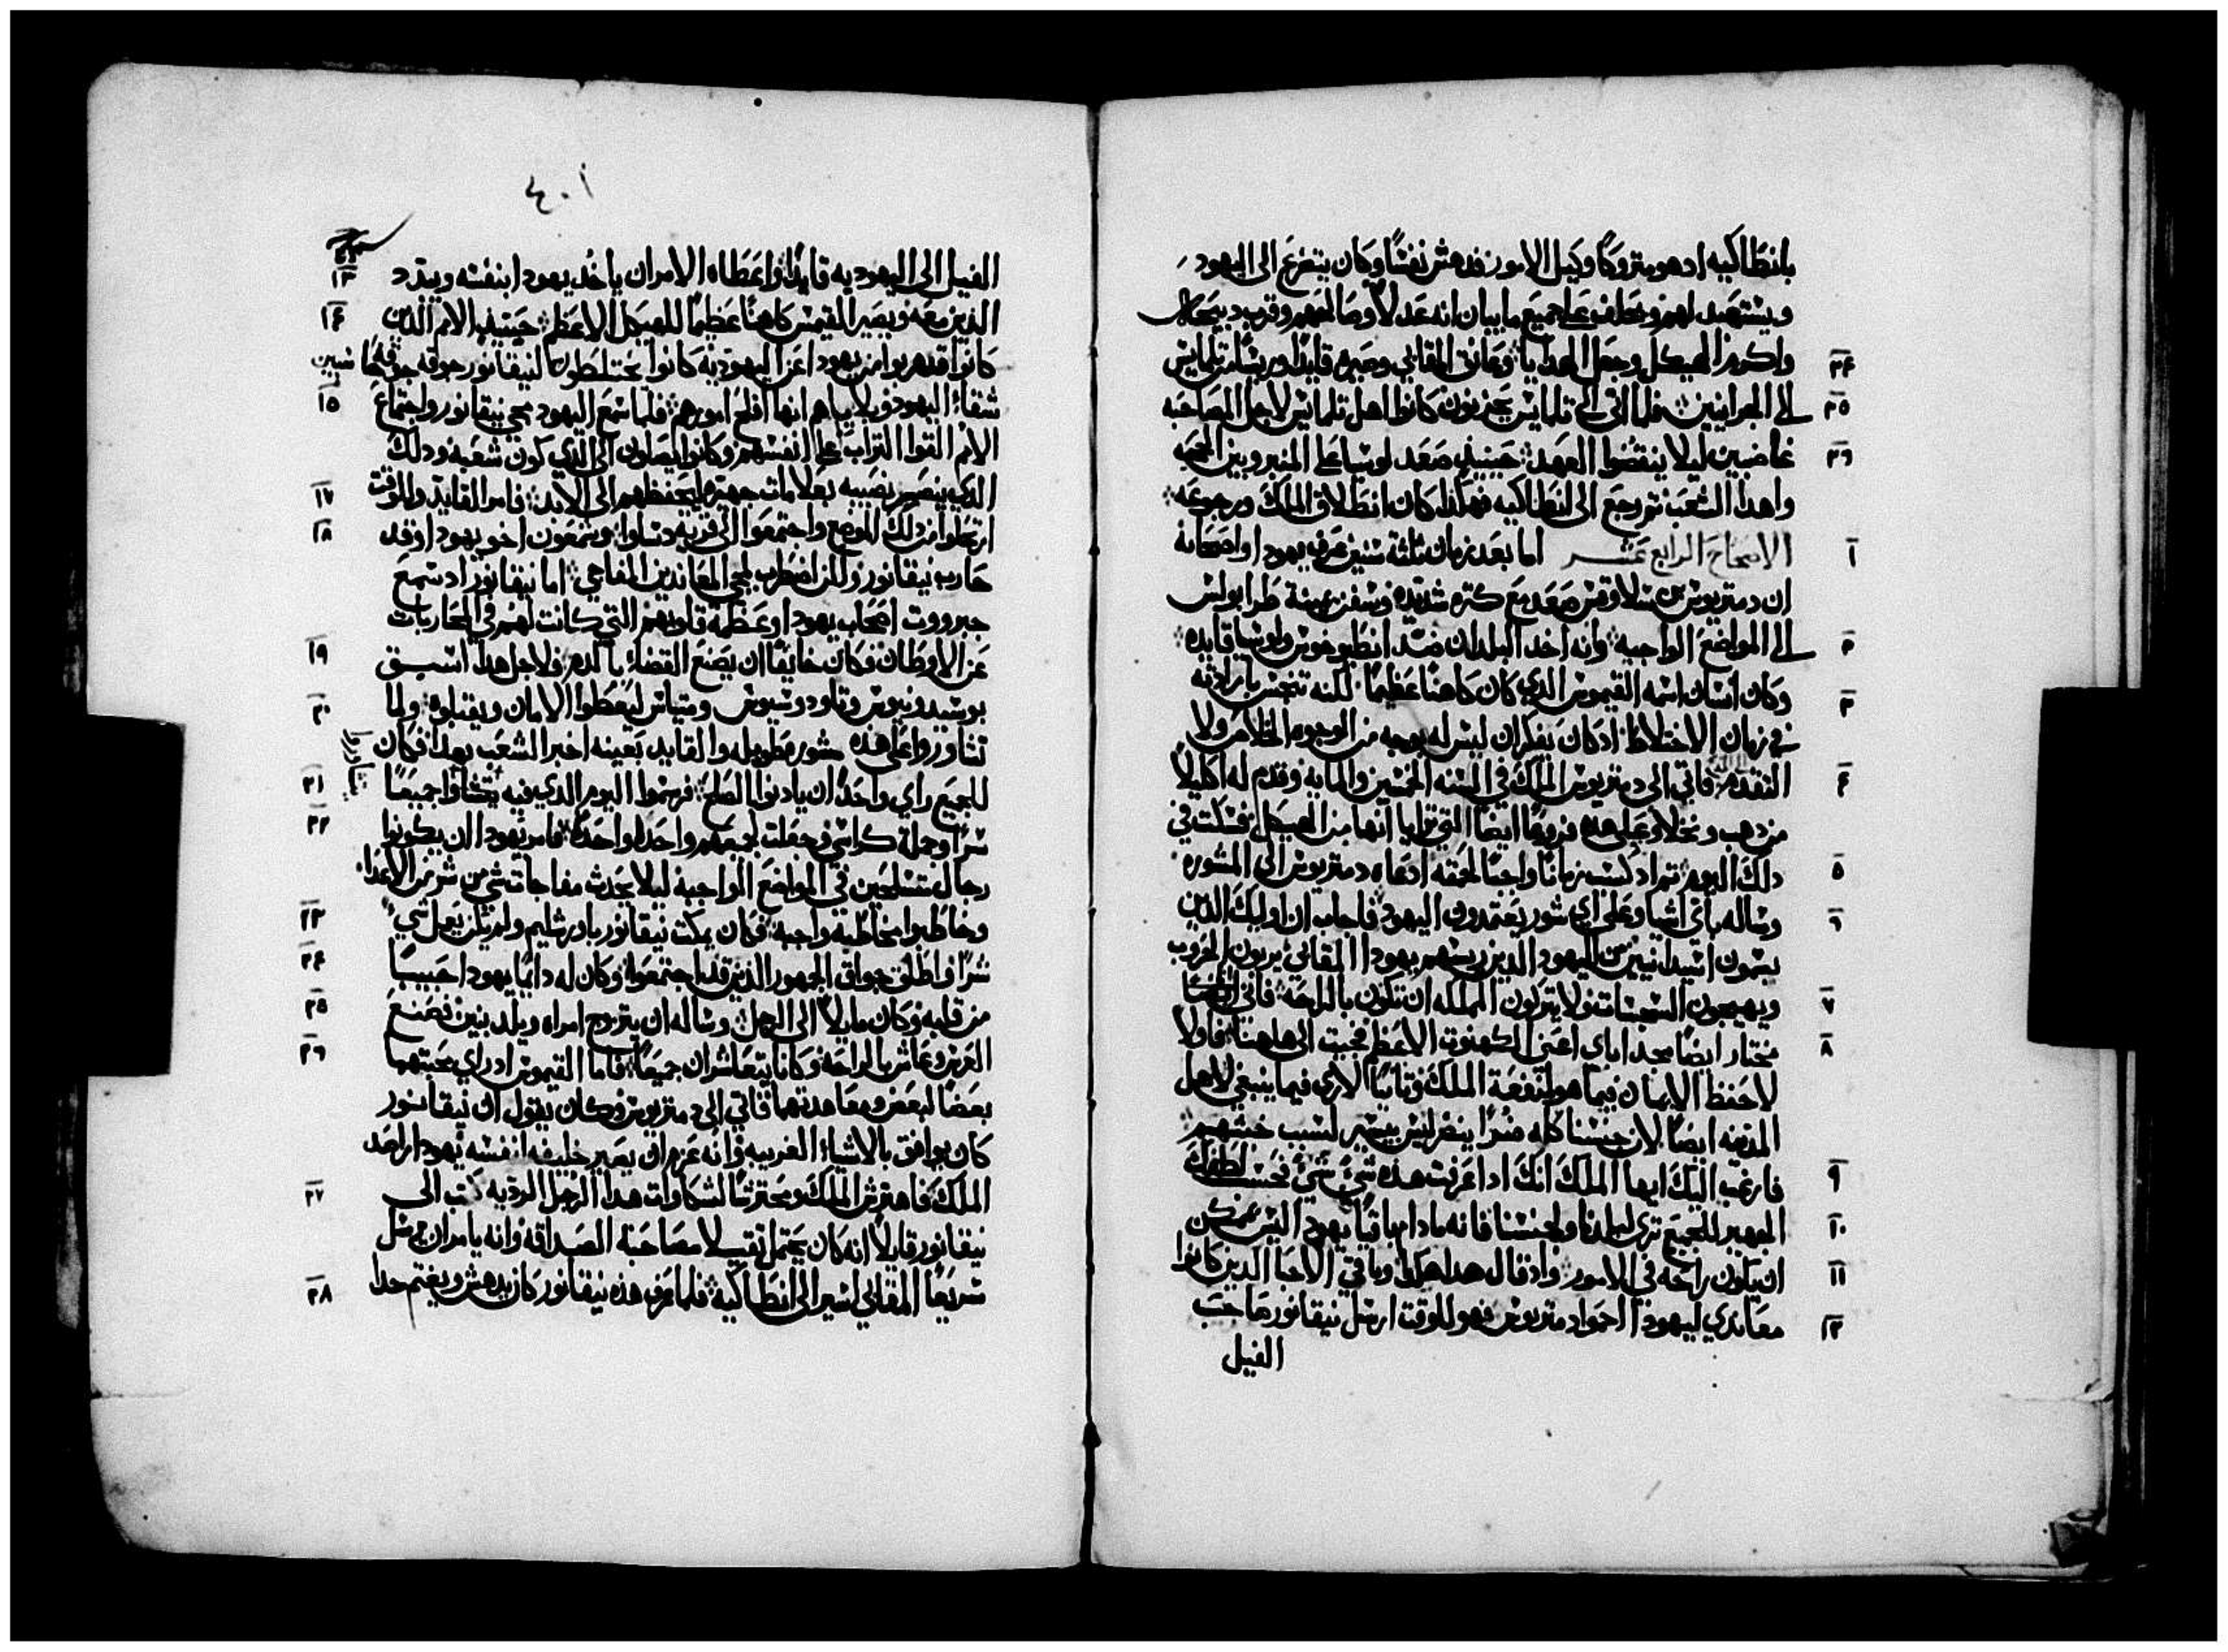 بانطاكيه اد هو متروكا وكيل الامور فدهش نفسا وكان يتضرع الى اليهود
ويستعبد لهم ويحلف على جميع ما يبان انه عدلا وصالحهم وقرب دبيحه
٢٤ واكرم الهيكل وجعل الهدايا وعانق المقابي وصيره قايدا وريسا من تلمايس
٢٥ الى الجرانيين فلما اتى الى تلمايس يحزنون كانوا اهل تلمايس لاجل المصاحبه
٢٦ غاضبين ليلا ينقضوا العهد حينيد صعد لوسيا على المنبر وبين الحجه
واهدا الشعب ثم رجع الى انطاكيه فهكدا كان انطلاق الملك ورجوعه
١ الاصحاح الرابع عشر اما بعد زمان ثلثة سنين عرف يهودا واصحابه
ان دمتريوس بن سلاوقس صعد مع كثره شديده وسفن بمينة طرابولس
٢ الى المواضع الواجبه وانه اخد البلدان ضد انطيوخوس ولوسيا قايده
٣ وكان انسان اسمه القيموس الدي كان كاهنا عظيما لكنه تنجس بارادته
في زمان الاختلاط اد كان يفكر ان ليس له بوجه من الوجوه الخلاص ولا
٤ التقدم فاتى الى دمتريوس الملك في السنه الخمسين والمايه وقدم له اكليلا
من دهب ونخلا وعلى هده فروعا ايضا التي تراىا انها من الهيكل فسكت في
٥ دلك اليوم ثم اد كسب زمانا واجبا لحمقه ادعاه دمتريوس الى المشوره
٦ وساله باي اشيا وعلى اي شور يعتمدون اليهود فاجاب ان اوليك الدين
يسمون اسيدانيين من اليهود الدين ريسهم يهودا المقابي يربون الحروب
٧ ويهيجون السجسات ولا يتركون المملكه ان تكون بالراحه فاني انا
٨ مختار ايضا مجد اباي اعني الكهنوت الاعظم فجيت الى هاهنا فاولا
لاحفظ الايمان فيما هو لمنفعة الملك وتانيا لاري فيما ينبغي لاهل
المدينه ايضا لان جنسنا كله ضررا ينضر ليس بيسير لسبب خبثهم
٩ فارغب اليك ايها الملك انك ادا عرفت هده شي شي فحسب لطفك
١٠ المبهر للجميع ترى لبلدنا ولجنسنا فانه مادام باقيا يهودا ليس يمكن
١١ ان يكون راحه في الامور واد قال هدا هكدا وباقي الاحبا الدين كانوا
١٢ معاندي ليهودا احموا دمتريوس فهو للوقت ارسل نيقانور صاحب
الفيل
٤٠١
١٣ الفيل الى اليهوديه قايدا واعطاه الامر ان ياخد يهودا بنفسه ويبدد
١٤ الدين معه ويصير القيمس كاهنا عظيما للهيكل الاعظم حينيد الامم الدين
كانوا قد هربوا من يهودا عن اليهوديه كانوا يختلطون لنيقانور جوقه جوقه
١٥ شقاء اليهود وبلاياهم انها افلح امورهم فلما سمع اليهود مجي نيقانور واجتماع
الامم القوا التراب على انفسهم وكانوا يصلون الى الدي كون شعبه ودلك
١٧ الدي ينصر نصيبه بعلامات جهيره ليحفظهم الى الابد فامر القايد وللوقت
١٨ ارتحلوا من دلك الموضع واجتمعوا الى قريه دساوا وشمعون اخو يهودا وقد
حارب نيقانور ولكن اضطرب لمجي المعاندين المفاجي اما نيقانور اد سمع
جبرووت اصحاب يهودا وعظمة قلوبهم التي كانت لهم في المحاربات
١٩ عن الاوطان فكان خايفا ان يصنع القضاء بالدم ولاجل هدا اسبق
٢٠ بوسيدونيوس وتاودوسيوس ومتياس ليعطوا الامان ويقبلوه ولما
تشاوروا على هده مشوره طويله والقايد بعينه اخبر الشعب بهدا فكان
٢١ للجميع راي واحد ان يادنوا الصلح فرسموا اليوم الدي فيه جميعا
٢٢ سرا وجملة كراسي وجعلت لجميعهم واحدا واحدا فامر يهودا ان يكونوا
رجال متسلحين في المواضع الواجبة ليلا يحدث مفاجاة شي من شر من الاعداء
٢٣ وخاطبوا مخاطبة واجبة فكان يمكت نيقانور باورشليم ولم يكن يعمل شي
٢٤ شرا واطلق جواق الجمهور الدين قد اجتمعوا وكان له دايما يهودا حبيبا
٢٥ من قلبه وكان مايلا الى الرجل وساله ان يتزوج امراه ويلد بنين فصنع
٢٦ العرس وعاش بالراحه وكانا يتعاشران جميعا فاما القيموس اد راي محبتهما
بعضا لبعض ومعاهدتهما فاتى الى دمتريوس وكان يقول ان نيقانور
كان يوافق بالاشياء الغريبه وانه عزم ان يصير خليفه لنفسه يهودا راصد
٢٧ الملك فاهترش الملك ومحترشا لشكاوات هدا الرجل الرديه كتب الى
نيقانور قايلا انه كان يحتمل تقيلا مصاحبة الصداقه وانه يامر ان يرسل
٢٨ سريعا المقابي اسيرا الى انطاكيه فلما عرف هده نيقانور كان يدهش ويغتم جدا